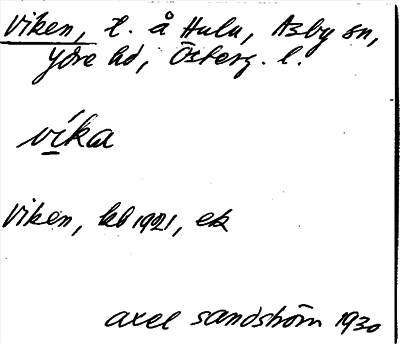 Viken, t. å Hulu, Asby sn,
Ydre hd, Österg. l.
víka
Viken, kb 1921, ek
axel sandström 1930